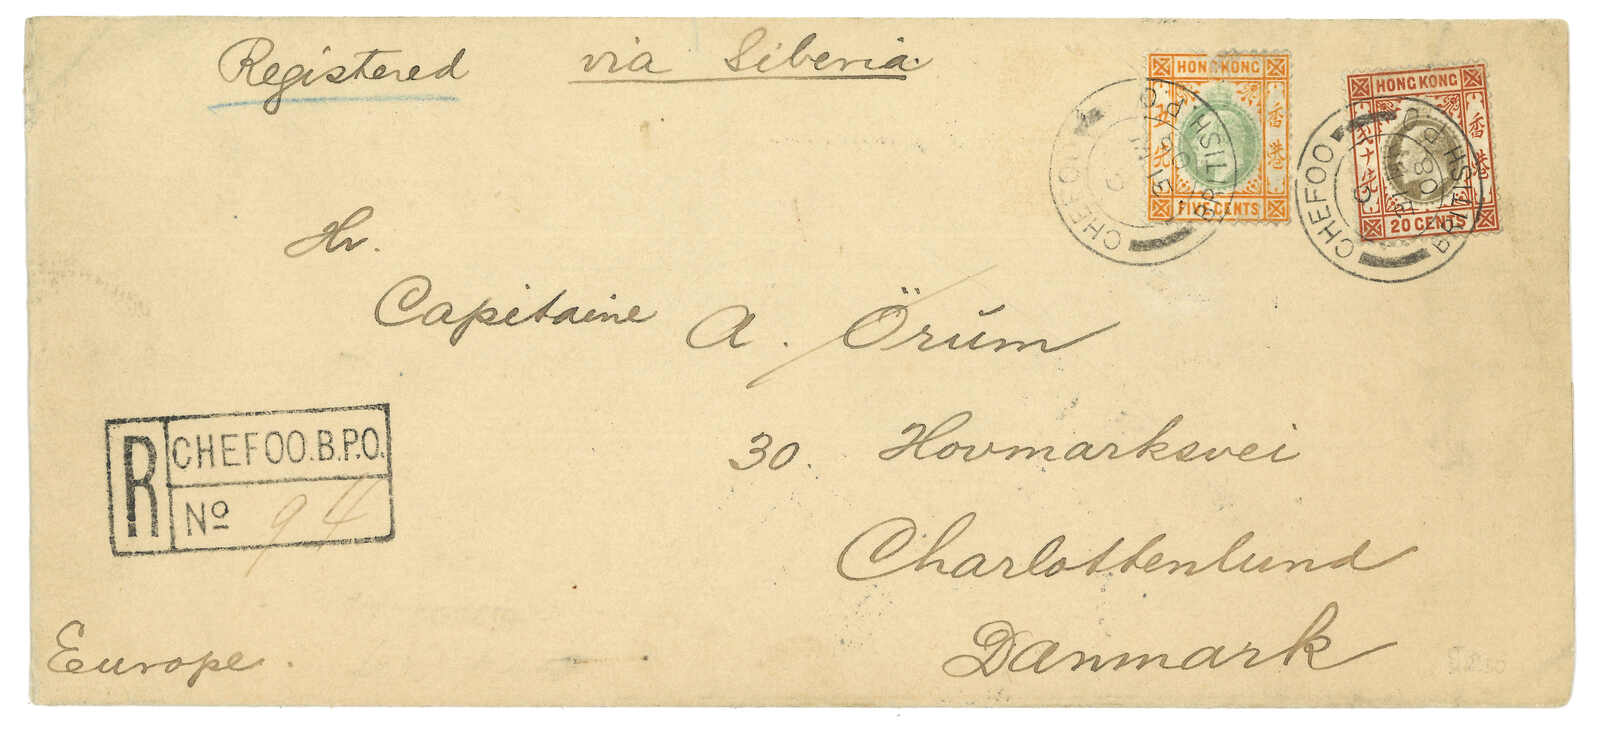 Registered via Siberia.
HONG KONG
香港
五先
FIVE CENTS
HONG KONG
香港
20 CENTS
CHEFOO
BRITISH P.O
CHEFOO
BRITISH P.O
Hr.
Capitaine A. Örúm
30. Hovmarksvei
Charlottenlund
Danmark
R
CHEFOO.B.P.O.
No 94
Europe.